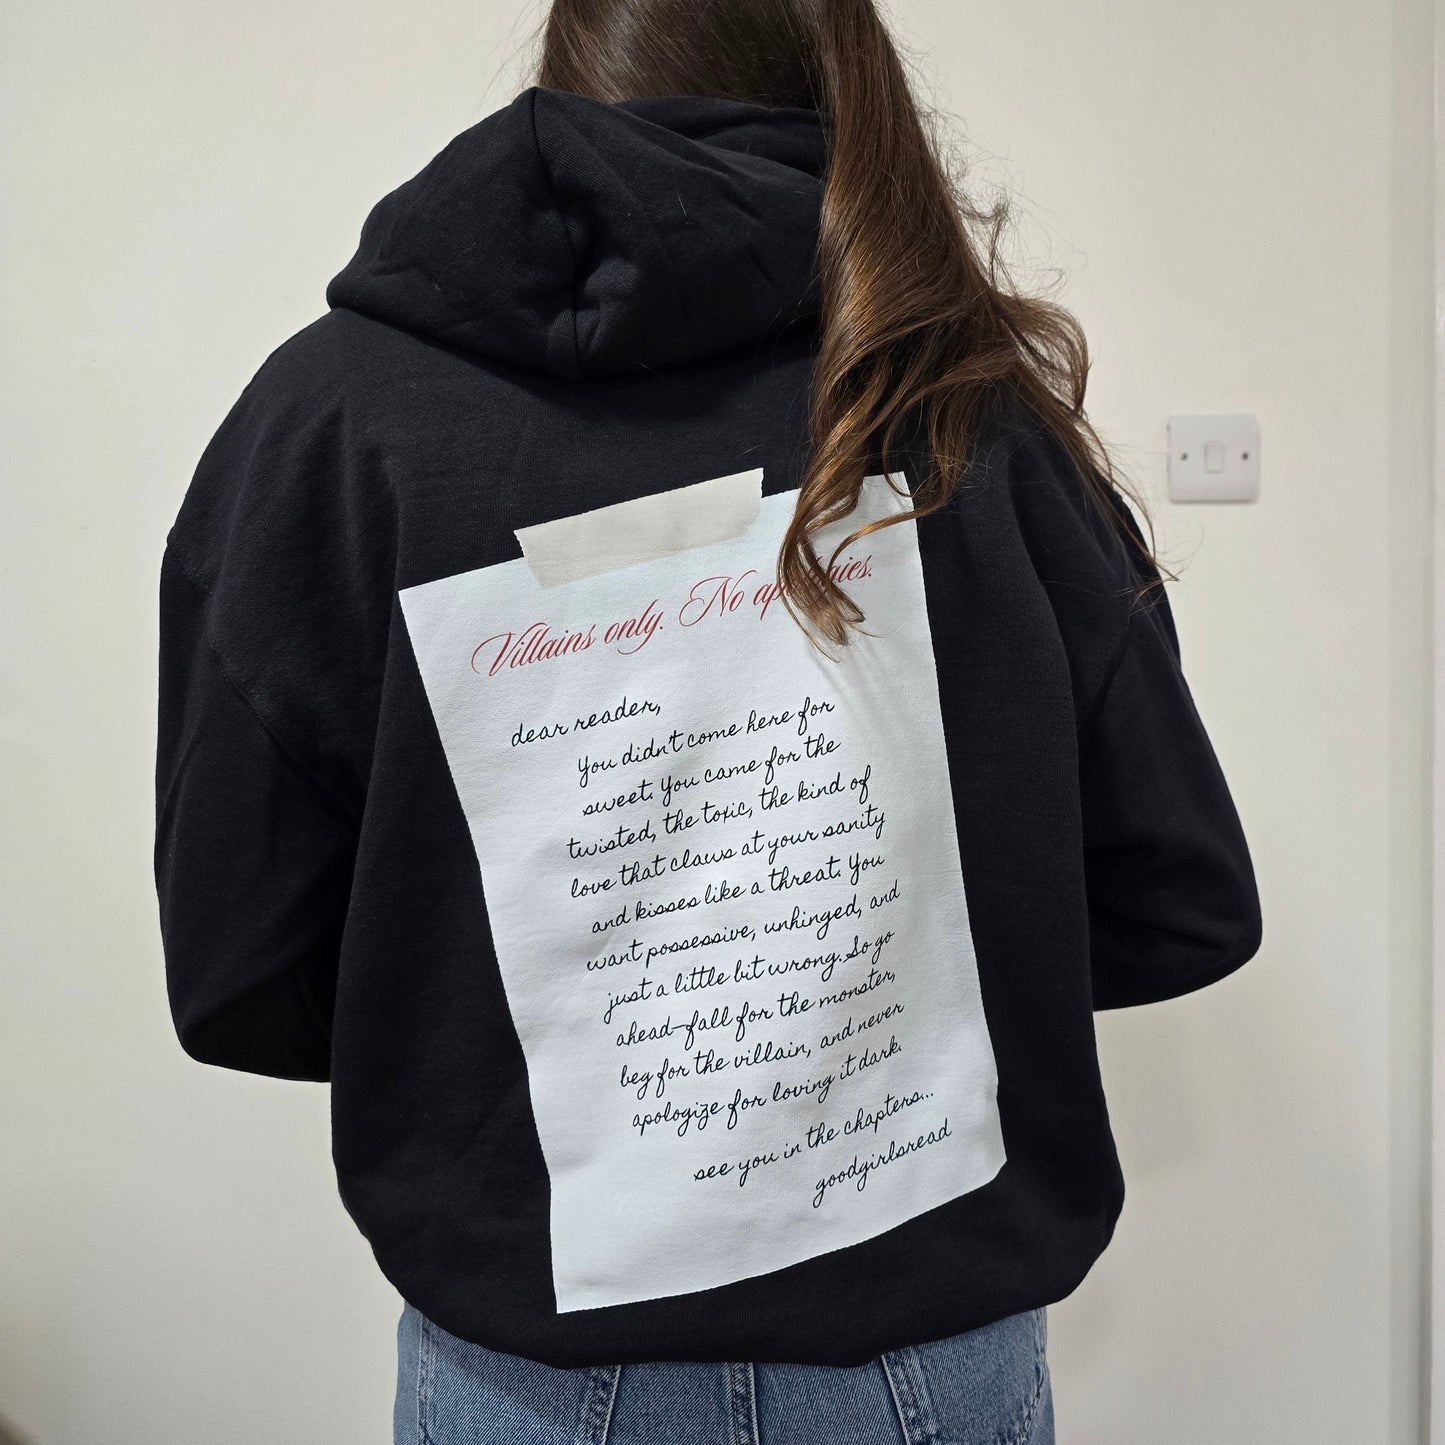 Villains only. No apologies.
dear reader,
You didn't come here for
sweet. You came for the
twisted, the toxic, the kind of
love that claws at your sanity
and kisses like a threat. You
want possessive, unhinged, and
just a little bit wrong. So go
ahead—fall for the monster,
beg for the villain, and never
apologize for loving it dark.
see you in the chapters...
goodgirlsread